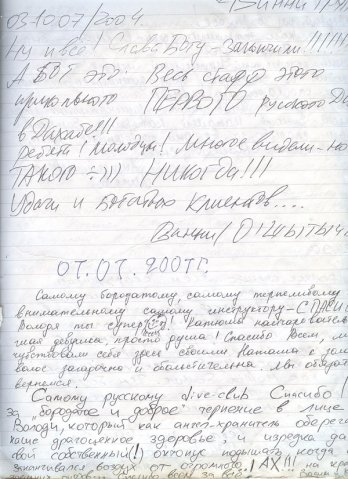 Винни
03.10.07/2004.
Ну и всё! Слава Богу - закончили!!!!!!
А ВОТ это. Весь стафф этого
прикольного ПЕРВОГО русского Да
в Дахабе!!!
ребята! молодцы! Многое видели - но
ТАКОГО ÷))) НИКОГДА!!!
Удачи и богатых клиентов....
Винни/
07.07.2007г.
Самому бородатому, самому терпеливому
внимательному самому инструктору - СПАСИ
Володя ты супер! Катюша
девушка, просто душа! Спасибо Всем,
чувствовали себя здесь своими Наташа с
загорична и обаятельна. Мы
вернемся.
Самому русскому dive-club Спасибо!
за "бородатое и доброе" терпение в лице
Володи, который как ангел-хранитель оберега
наше драгоценное здоровье, и изредка да
свой собственный(!) октопус подышать когда
заканчивался воздух от огромного! АХ!!! на кра